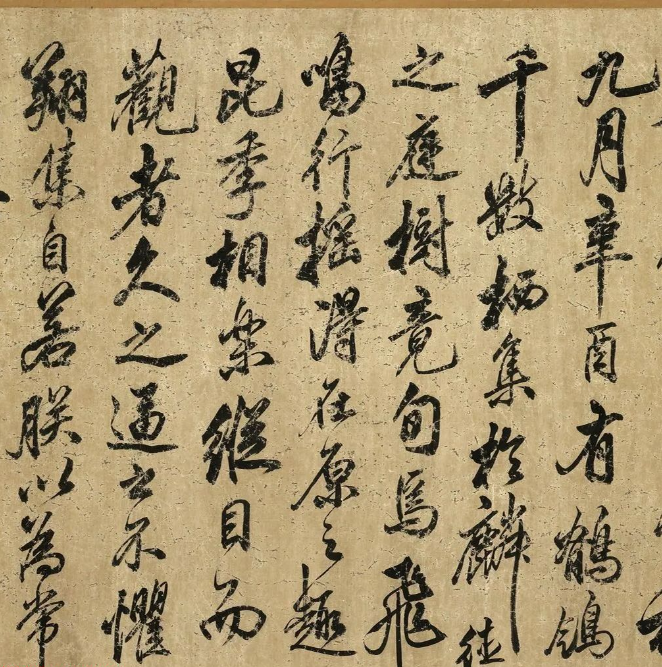 九月辛酉有鶺鴒
千數栖集於麟德
之庭樹竟旬焉飛
鳴行搖得在原之趣
昆季相樂縱目而
觀者久之逼之不懼
翔集自若朕以為常